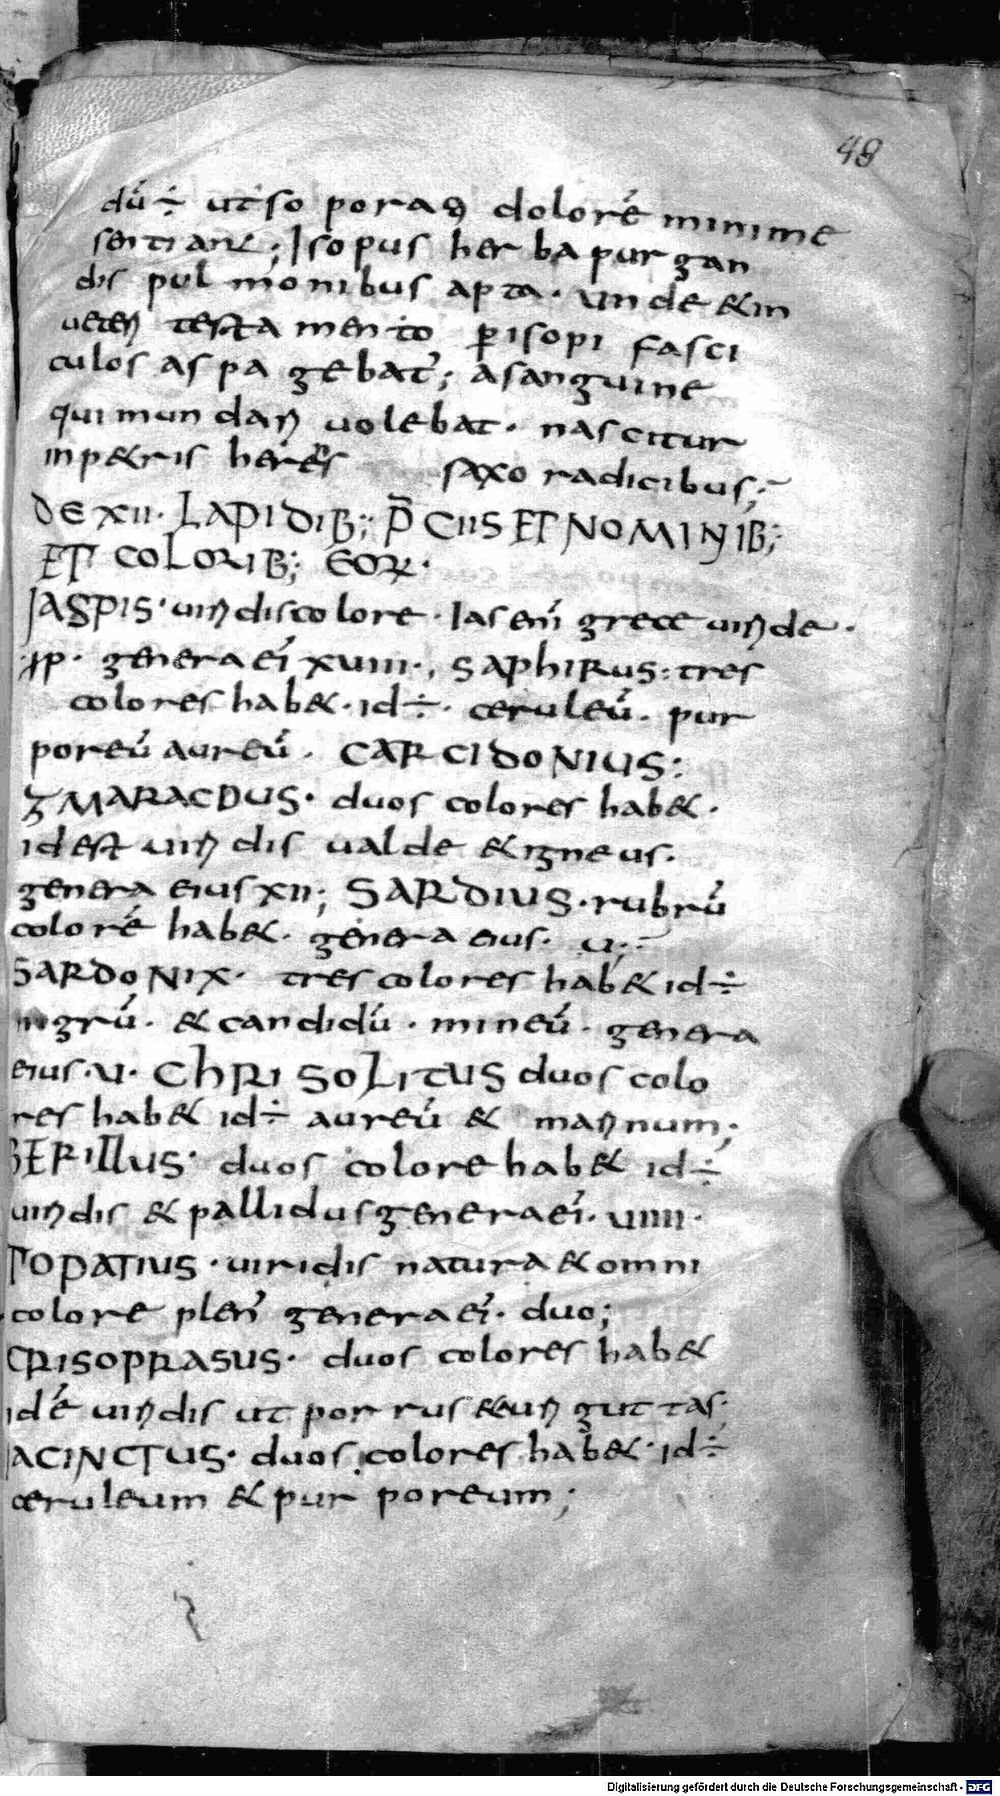 48
dū ÷ ut so poras dolorē minime
sentiant; Isopus herba purgan
dis pulmonibus apta. unde & in
ueteri testamento ꝑ isopi fasci
culos aspagebat᷒; a sanguine
qui mundari uolebat. nascitur
in p&ris saxo radicibus;
DE XII. LAPIDIB; P̄CIIS ET NOMINIB;
ET COLORIB; EOꝜ.
JASPIS. uiridis colore. Ias enī grece uiride.
genera eī xuiii., SAPHIRUS: tres
colores hab&. id ÷. ceruleū. pur
poreū aureū. CARCIDONIUS:
ZMARACDUS. duos colores hab&.
id est uiridis ualde & igneus.
genera eius xii; SARDIUS. rubrū
colorē hab&. genera eius. u;
SARDONIX. tres colores hab& id ÷
nigrū. & candidū. mineū. genera
eius. u. CHRISOLITUS duos colo
res hab& id ÷ aureū & marinum;
BERILLUS. duos colore hab& id ÷
uiridis & pallidus genera eī. uiiii.
TOPATIUS. uiridis natura & omni
colore plen᷒ genera eī. duo;
CRISOPRASUS. duos colores hab&
id ē uiridis ut porrus guttas;
JACINCTUS. duos colores hab&. id ÷
ceruleum & purporeum;
Digitalisierung gefördert durch die Deutsche Forschungsgemeinschaft - DFG